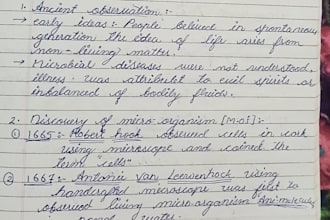 1. Ancient observation :-
→ early ideas :- People belived in spontaneous
generation the idea of life aries from
non-living matter
→ Microbial diseases were not understood,
illness was attributet to evil spirits or
inbalanced of bodily fluids.
2. Discovery of micro organism [M.O] :-
① 1665 :- Robert hook observed cells in cork
using microscope and coined the
term "cells"
② 1667 :- Antonie van Leewenhock using
handcrafted microscope was first to
observed living micro organism
water.